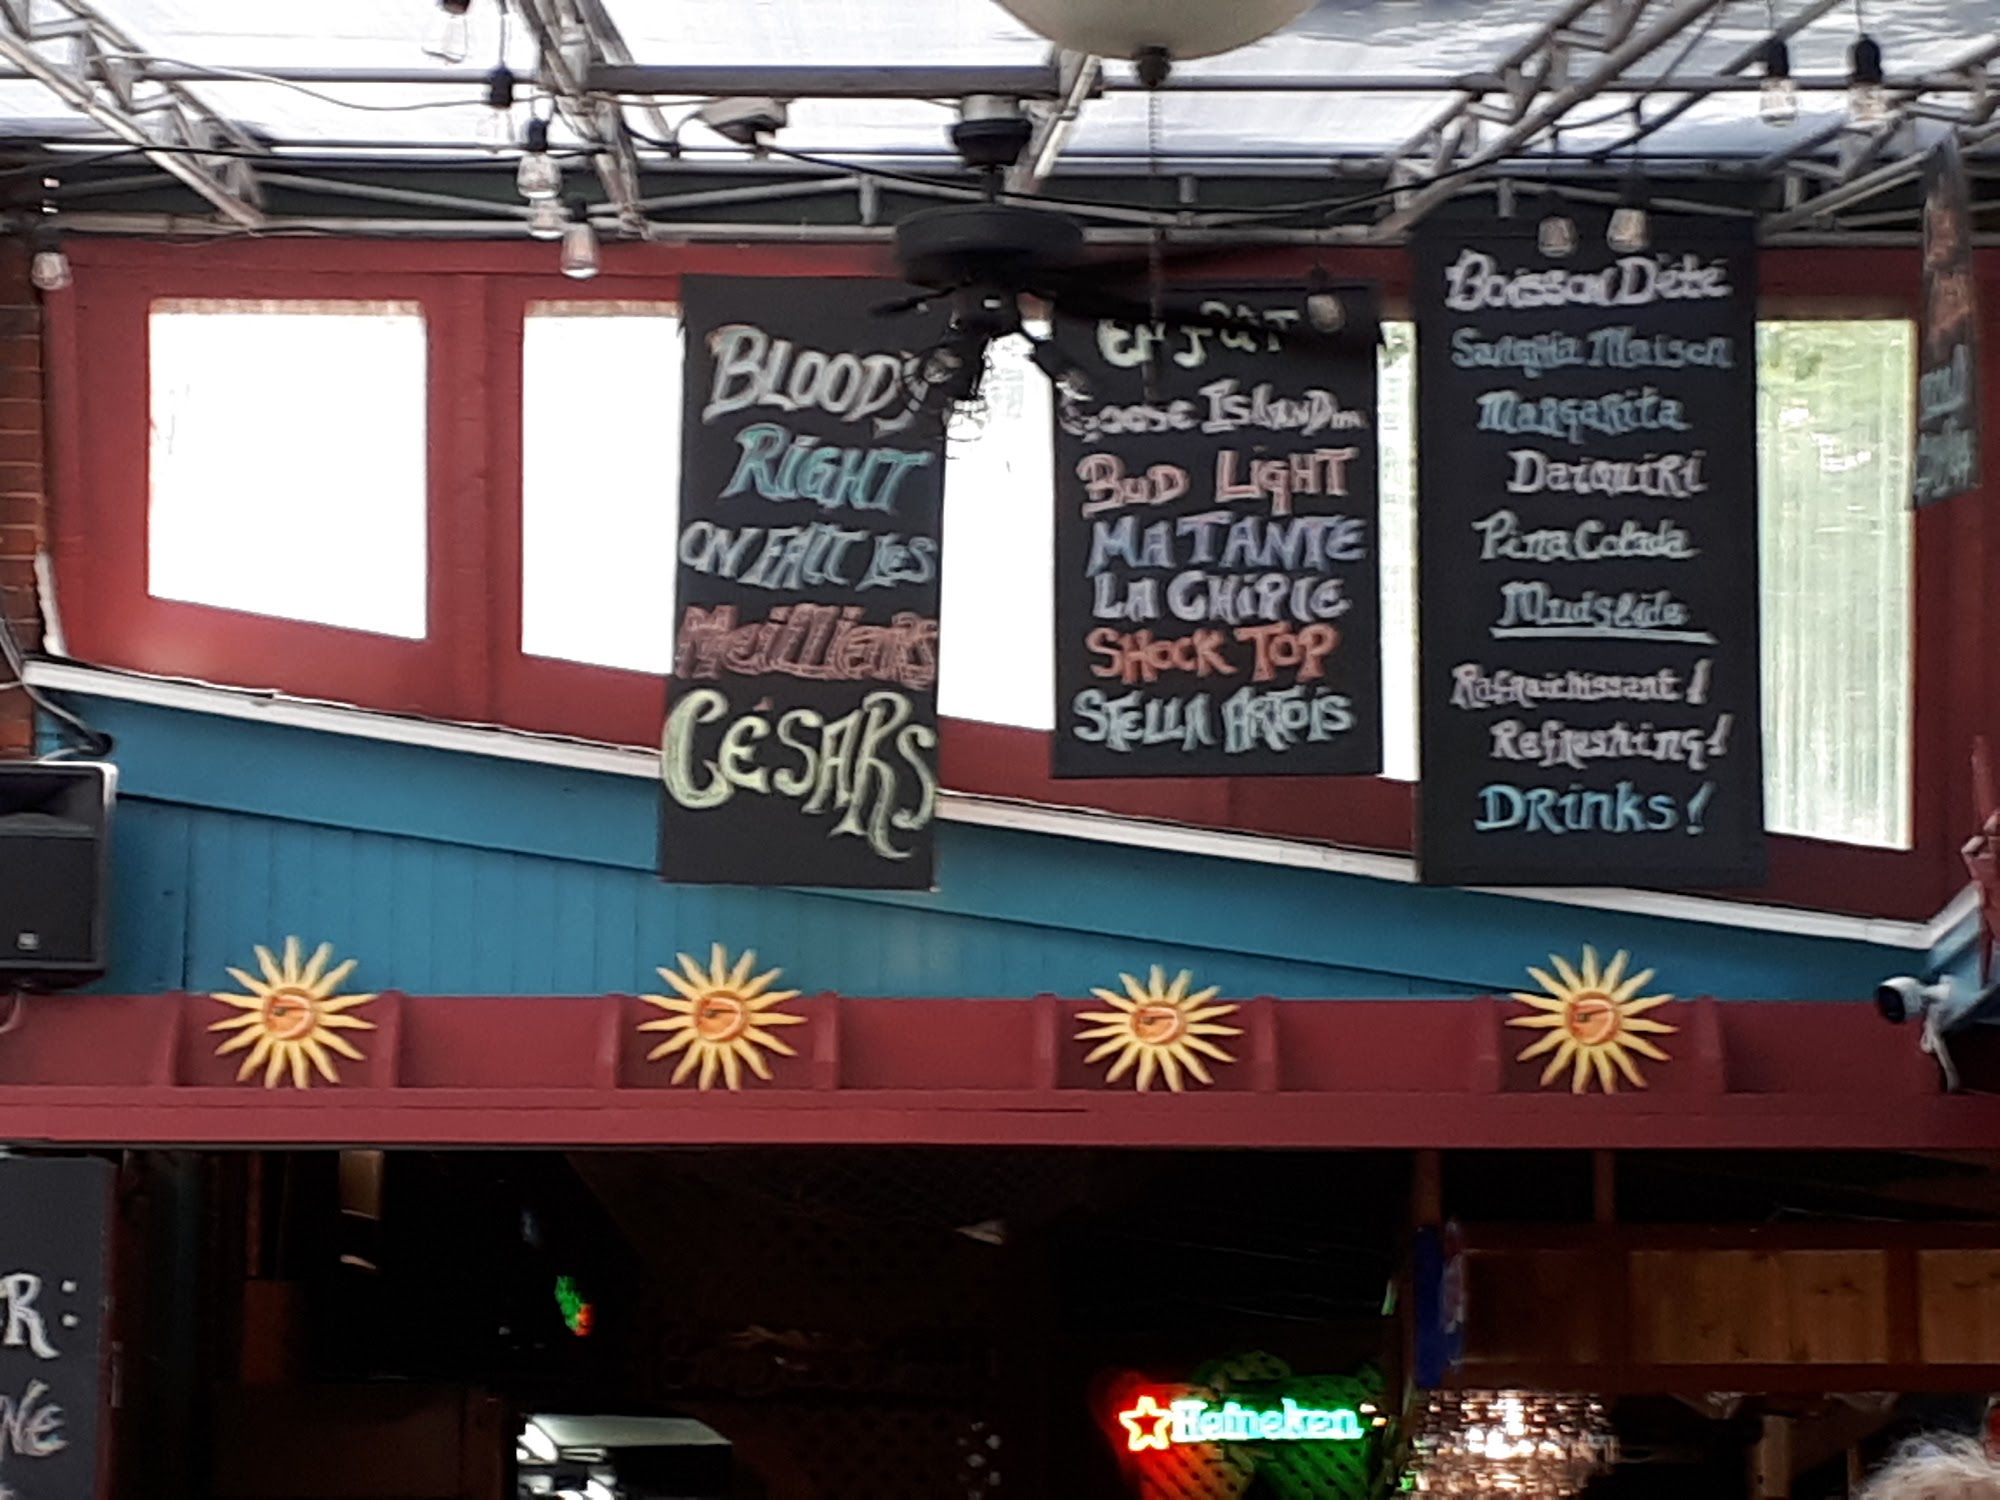 BLOODY
RIGHT
ON FAIT LES
Meilleurs
CÉSARS
EN FÛT
GOOSE ISLAND
BUD LIGHT
MATANTE
LA CHIPIE
SHOCK TOP
STELLA ARTOIS
Boisson D'été
Sangria Maison
Margarita
Daiquiri
Pina Colada
Mudslide
Rafraichissant!
Refreshing!
DRinks!
R:
NE
Heineken